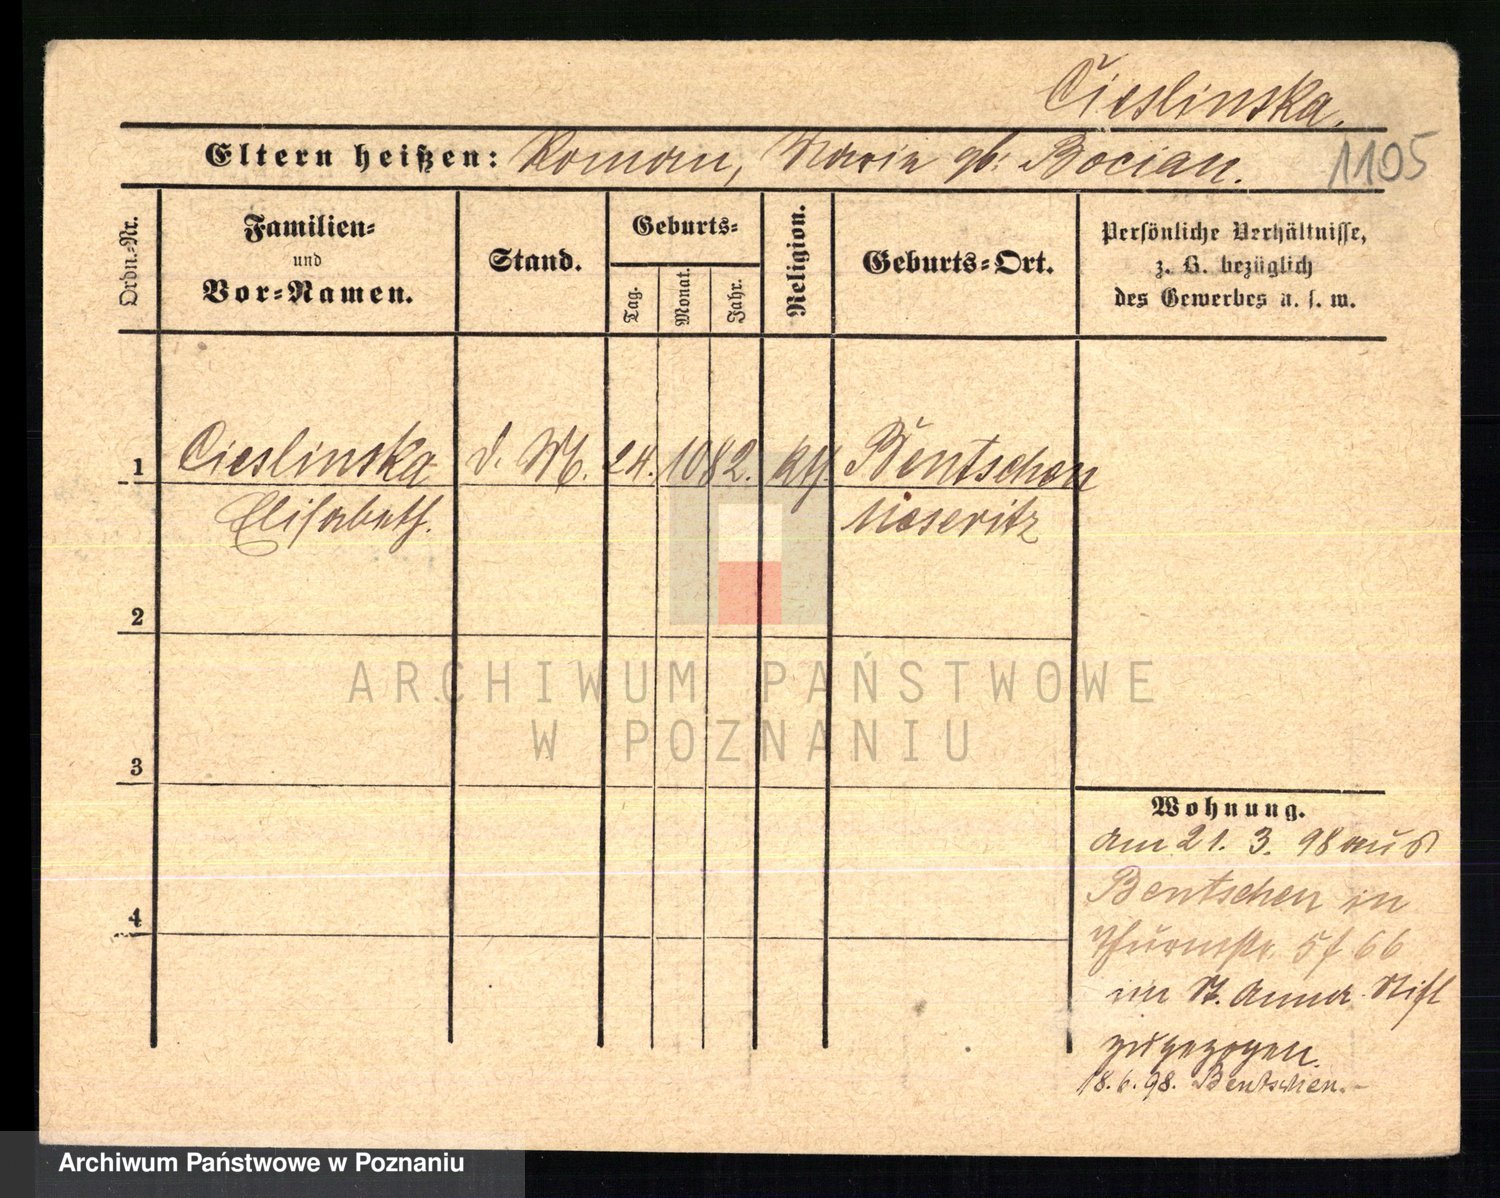 Cieslinska.
Eltern heißen: Roman, Marie gb. Bocian.
1105
Ordn.-Nr.
Familien-
und
Vor-Namen.
Stand.
Geburts-
Tag.
Monat.
Jahr.
Religion.
Geburts-Ort.
Persönliche Verhältnisse,
z. B. bezüglich
des Gewerbes u. s. w.
1 Cieslinska d. M. 24. 10 82. kth. Bentschen
Elisabeth. Meseritz
2
3
4
Wohnung.
am 21. 3. 98 aus
Bentschen in
Thurmstr. 5/66
im St. Anna-Stift
zugezogen.
18.6.98. Bentschen.-
ARCHIWUM PAŃSTWOWE
W POZNANIU
Archiwum Państwowe w Poznaniu